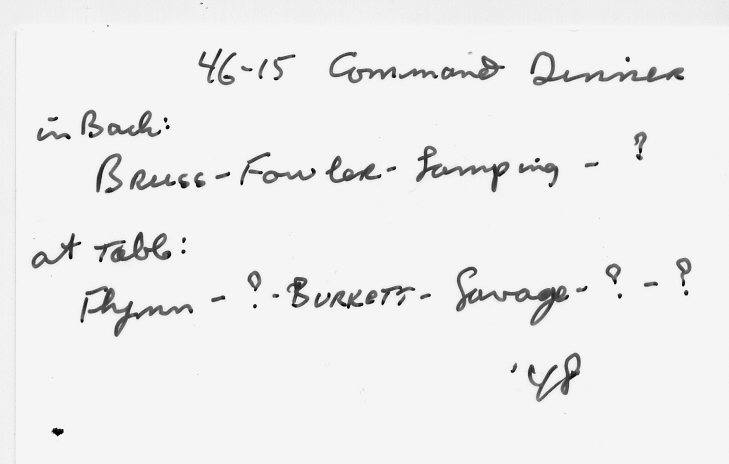 46-15 Command Dinner
in Back:
Bruss - Fowler - Lamping - ?
at Table:
Flynn - ? - Burkett - Savage - ? - ?
'48